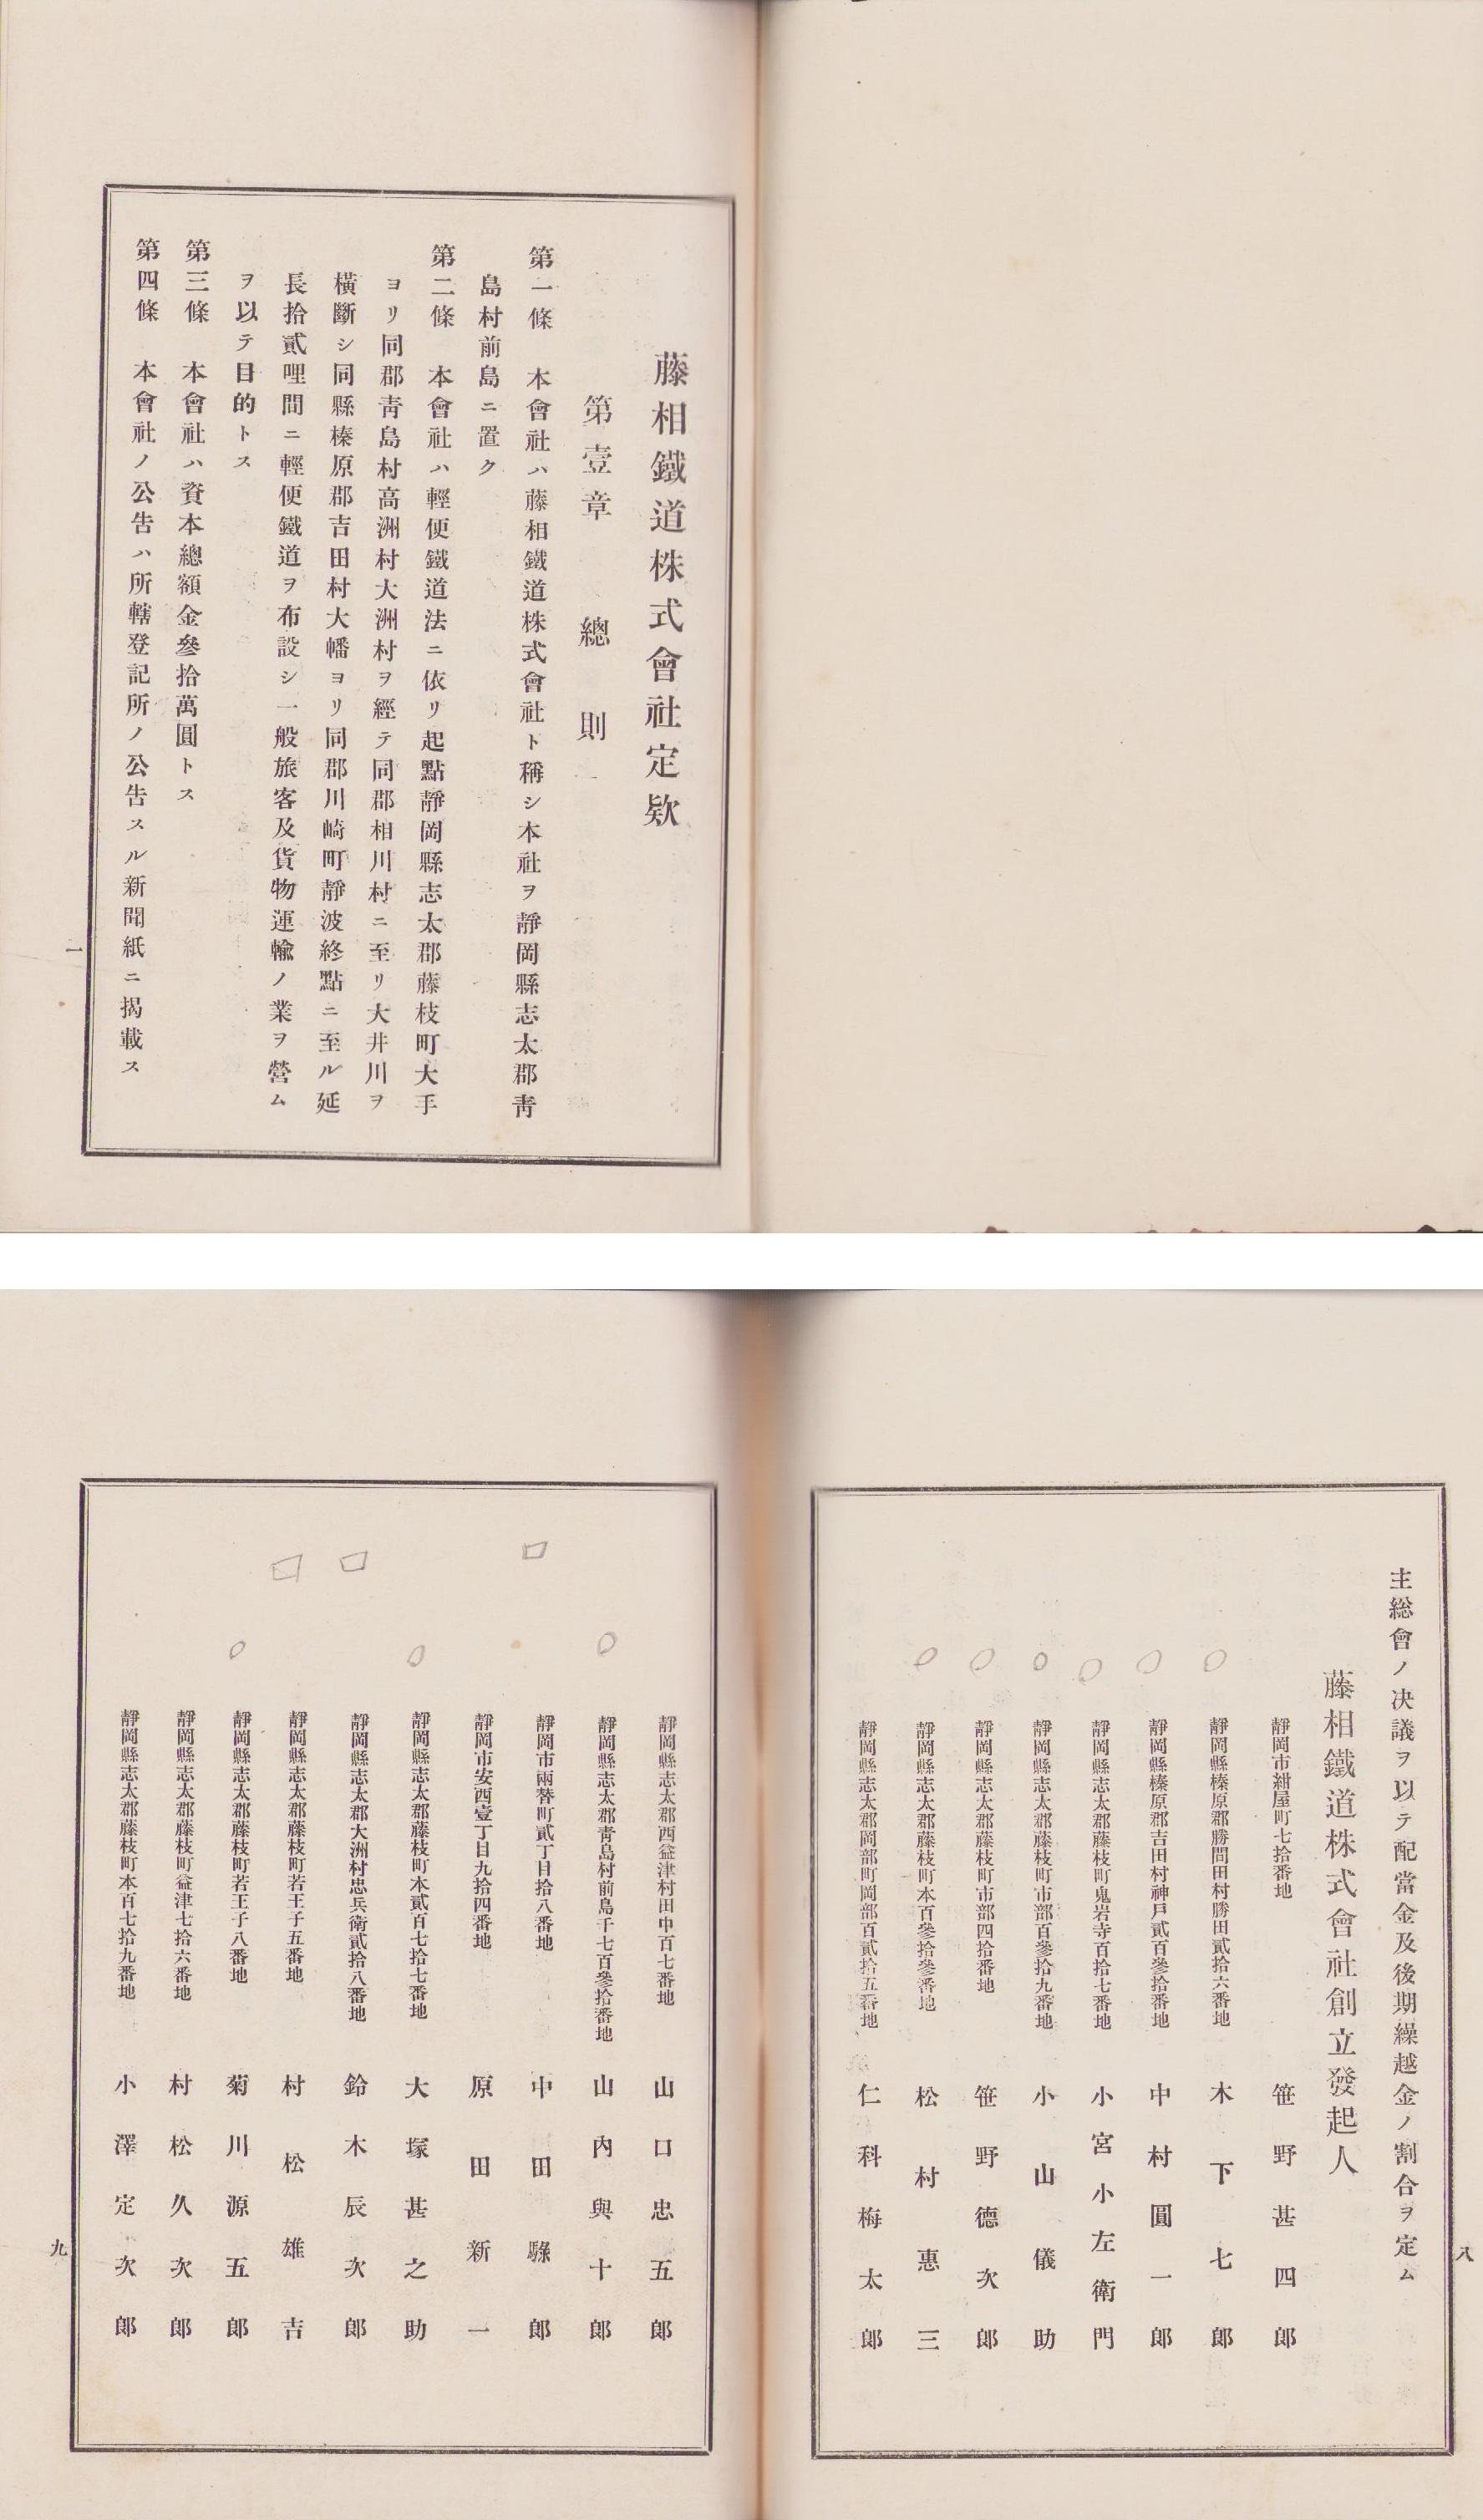 藤相鐵道株式會社定欵
第壹章　總則
第一條　本會社ハ藤相鐵道株式會社ト稱シ本社ヲ靜岡縣志太郡靑
島村前島ニ置ク
第二條　本會社ハ輕便鐵道法ニ依リ起點靜岡縣志太郡藤枝町大手
ヨリ同郡靑島村高洲村大洲村ヲ經テ同郡相川村ニ至リ大井川ヲ
橫斷シ同縣榛原郡吉田村大幡ヨリ同郡川崎町靜波終點ニ至ル延
長拾貳哩間ニ輕便鐵道ヲ布設シ一般旅客及貨物運輸ノ業ヲ營ム
ヲ以テ目的トス
第三條　本會社ハ資本總額金參拾萬圓トス
第四條　本會社ノ公告ハ所轄登記所ノ公告スル新聞紙ニ揭載ス
一
主総會ノ决議ヲ以テ配當金及後期繰越金ノ割合ヲ定ム
藤相鐵道株式會社創立發起人
靜岡市紺屋町七拾番地　笹野甚四郎
靜岡縣榛原郡勝間田村勝田貳拾六番地　木下七郎
靜岡縣榛原郡吉田村神戶貳百參拾番地　中村圓一郎
靜岡縣志太郡藤枝町鬼岩寺百拾七番地　小宮小左衛門
靜岡縣志太郡藤枝町市部百參拾九番地　小山儀助
靜岡縣志太郡藤枝町市部四拾番地　笹野德次郎
靜岡縣志太郡藤枝町本百參拾參番地　松村惠三
靜岡縣志太郡岡部町岡部百貳拾五番地　仁科梅太郎
八
靜岡縣志太郡西益津村田中百七番地　山口忠五郎
靜岡縣志太郡靑島村前島千七百參拾番地　山內與十郎
靜岡市兩替町貳丁目拾八番地　中田騄郎
靜岡市安西壹丁目九拾四番地　原田新一
靜岡縣志太郡藤枝町本貳百七拾七番地　大塚甚之助
靜岡縣志太郡大洲村忠兵衛貳拾八番地　鈴木辰次郎
靜岡縣志太郡藤枝町若王子五番地　村松雄吉
靜岡縣志太郡藤枝町若王子八番地　菊川源五郎
靜岡縣志太郡藤枝町益津七拾六番地　村松久次郎
靜岡縣志太郡藤枝町本百七拾九番地　小澤定次郎
九